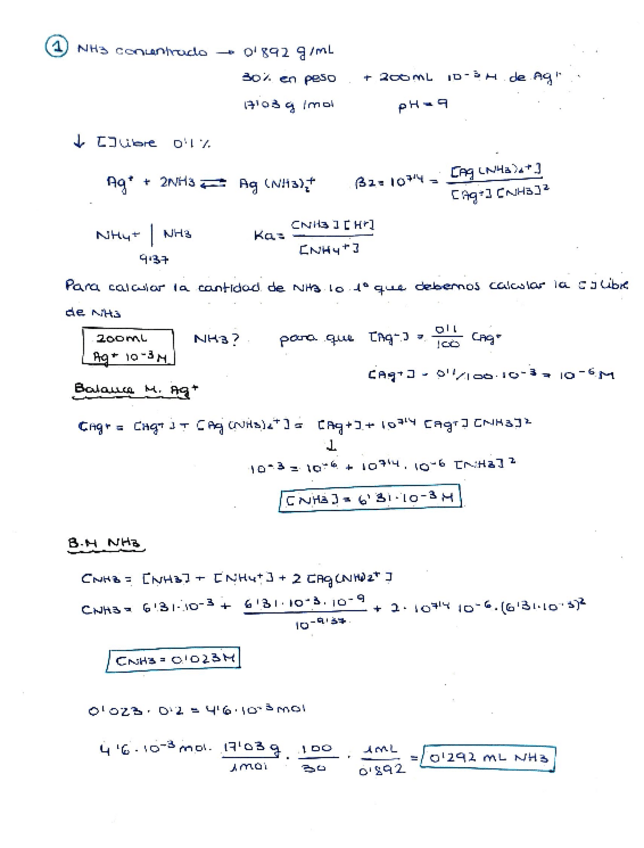 1 NH3 concentrado → 0'892 g/mL
30% en peso + 200mL 10-3 M de Ag+
17'03 g/mol pH=9
↓ []libre 0'1%
Ag+ + 2NH3 ⇌ Ag(NH3)2+ β2=10^7'4 = [Ag(NH3)2+] / [Ag+][NH3]2
NH4+ | NH3 Ka= [NH3][H+] / [NH4+]
9'37
Para calcular la cantidad de NH3 lo 1º que debemos calcular la []libre
de NH3
200mL NH3? para que [Ag+] = 0'1/100 CAg+
Ag+ 10-3 M
[Ag+] = 0'1/100·10-3 = 10-6 M
Balance M. Ag+
CAg+ = [Ag+] + [Ag(NH3)2+] = [Ag+] + 10^7'4 [Ag+][NH3]2
↓
10-3 = 10-6 + 10^7'4 · 10-6 [NH3]2
[NH3] = 6'31·10-3 M
B.M NH3
CNH3 = [NH3] + [NH4+] + 2[Ag(NH)2+]
CNH3 = 6'31·10-3 + 6'31·10-3·10-9 / 10-9'37 + 2·10^7'4 10-6·(6'31·10-3)2
CNH3 = 0'023M
0'023 · 0'2 = 4'6·10-3 mol
4'6·10-3 mol · 17'03 g / 1mol · 100 / 30 · 1mL / 0'892 = 0'292 mL NH3